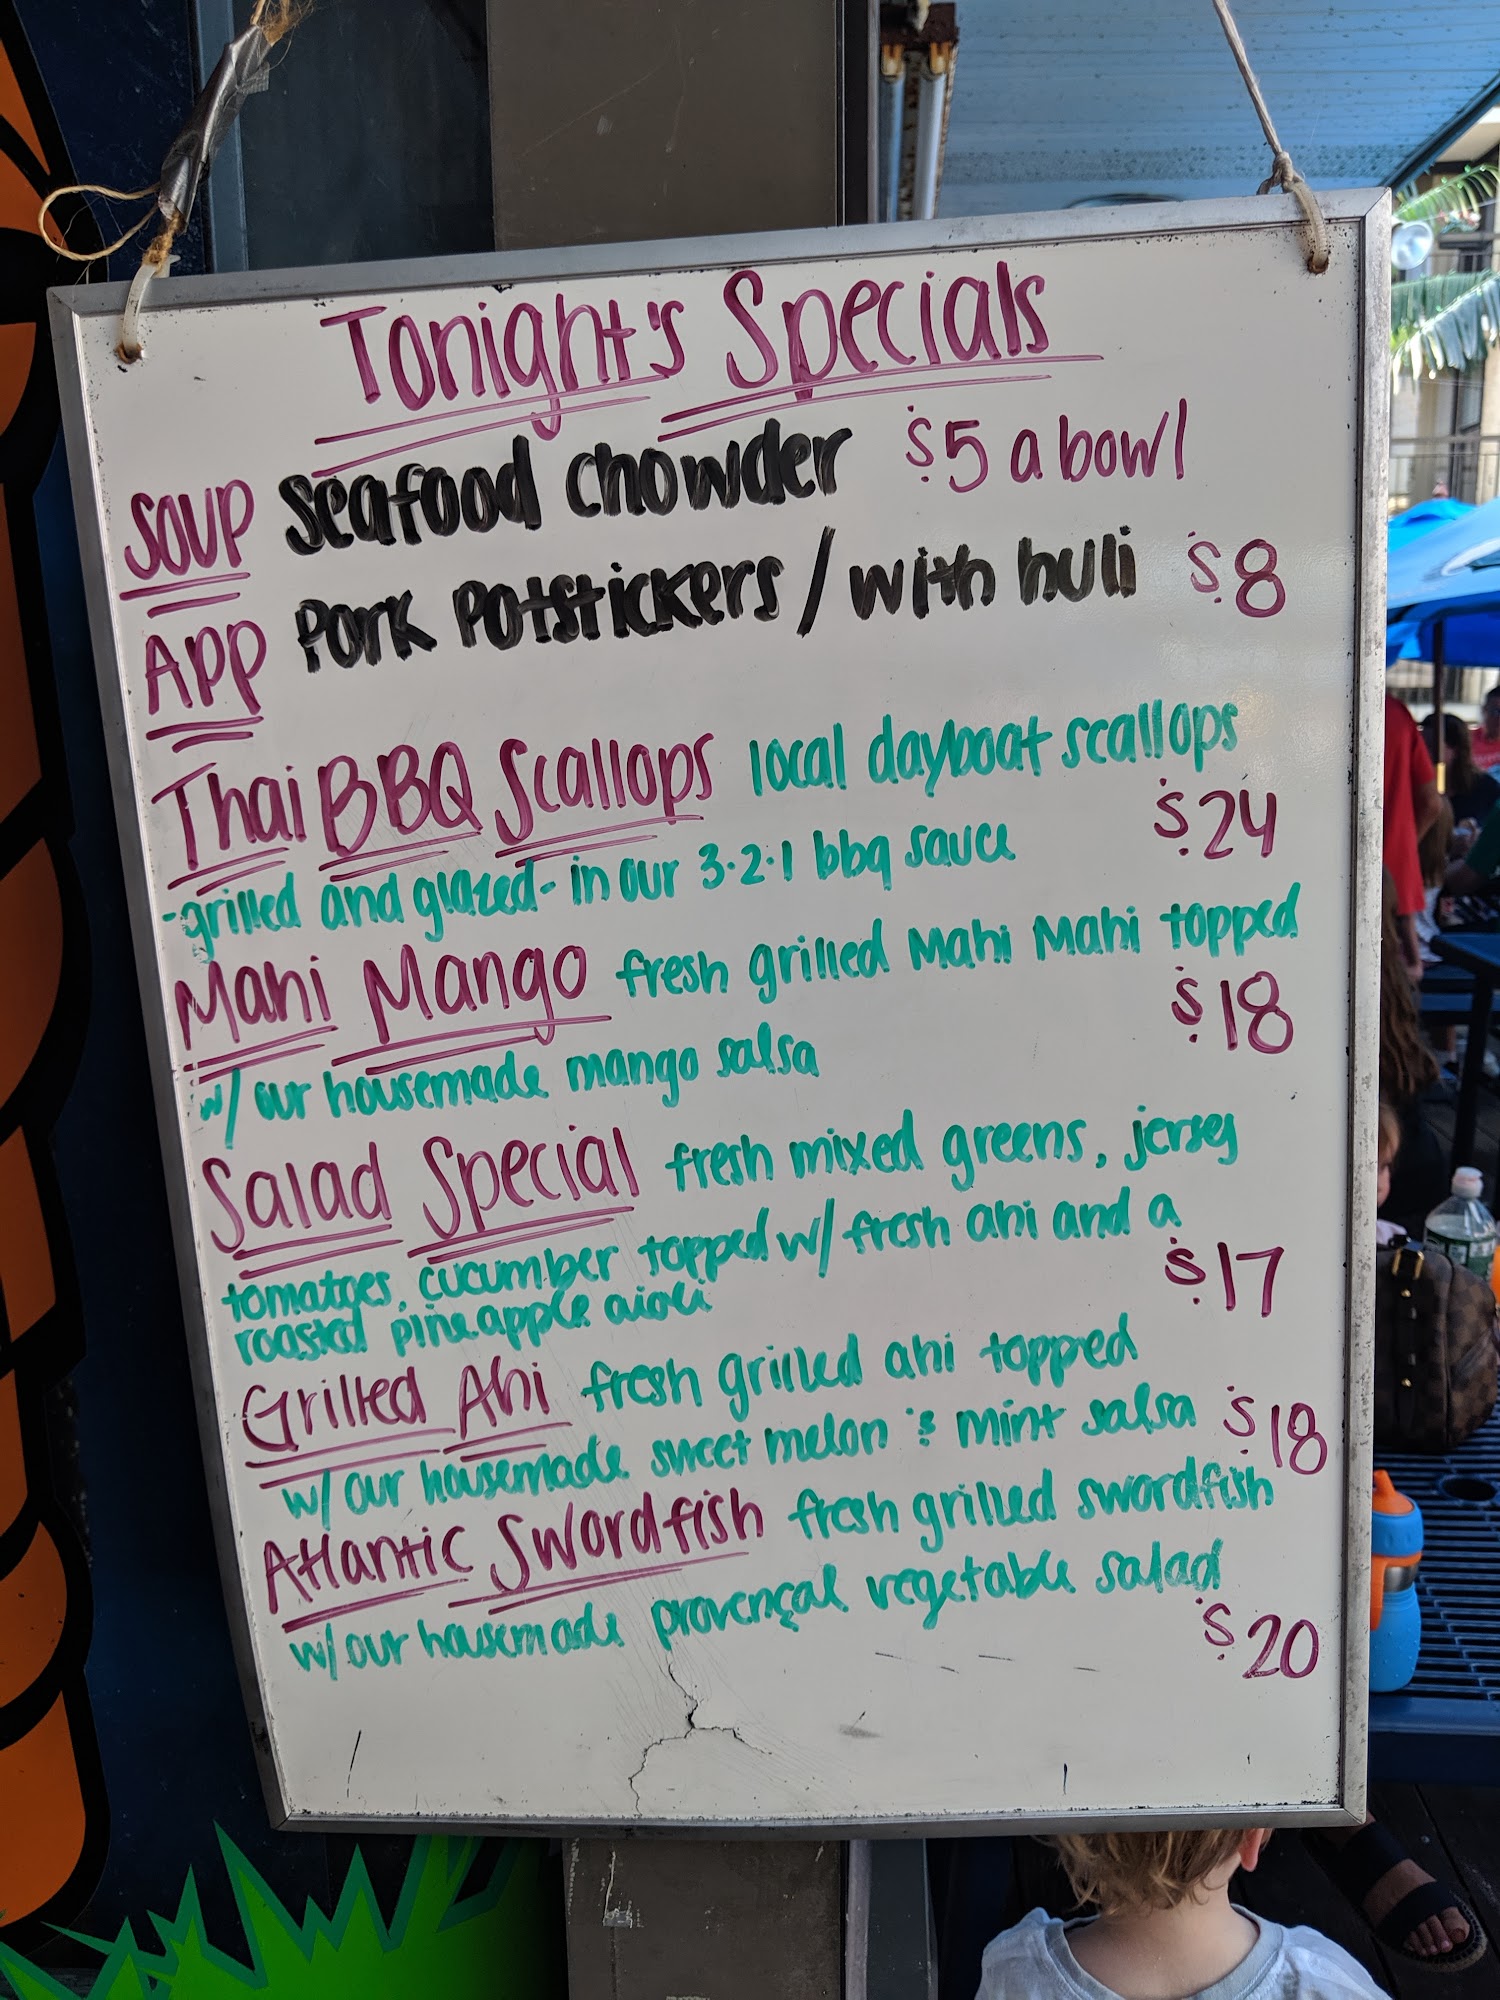 Tonight's Specials
SOUP Seafood Chowder $5 a bowl
APP Pork Potstickers / with huli $8
Thai BBQ Scallops local dayboat scallops
-grilled and glazed- in our 3·2·1 bbq sauce $24
Mahi Mango fresh grilled Mahi Mahi topped
w/ our housemade mango salsa $18
Salad Special fresh mixed greens, jersey
tomatoes, cucumber topped w/ fresh ahi and a
roasted pineapple aioli $17
Grilled Ahi fresh grilled ahi topped
w/ our housemade sweet melon & mint salsa $18
Atlantic Swordfish fresh grilled swordfish
w/ our housemade provençal vegetable salad
$20